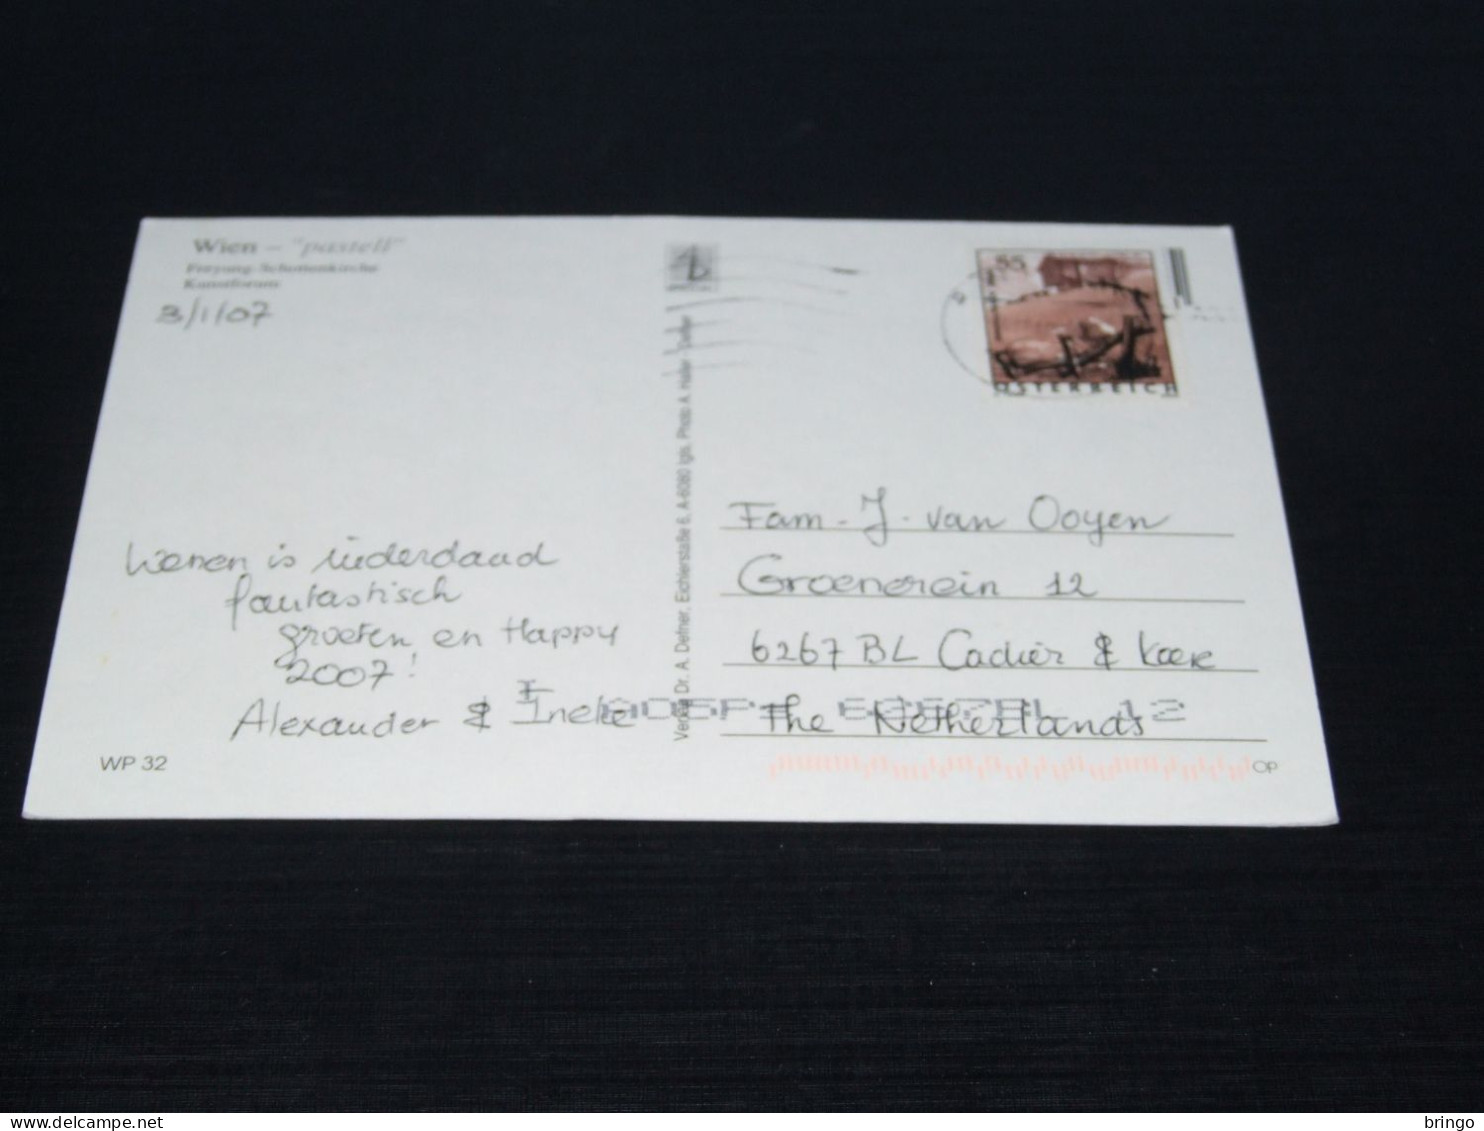 Wien – "pastell"
Freyung-Schottenkirche
Kunstforum
3/1/07
Wenen is inderdaad
fantastisch
groeten en Happy
2007!
Alexander & Ineke
WP 32
Verlag Dr. A. Defner, Eichlerstraße 6, A-6080 Igls, Photo A. Haller - Defner
55
ÖSTERREICH
Fam. J. van Ooyen
Groenerein 12
6267 BL Cadier & Keer
The Netherlands
6267BL 12
OP
bringo
delcampe.net